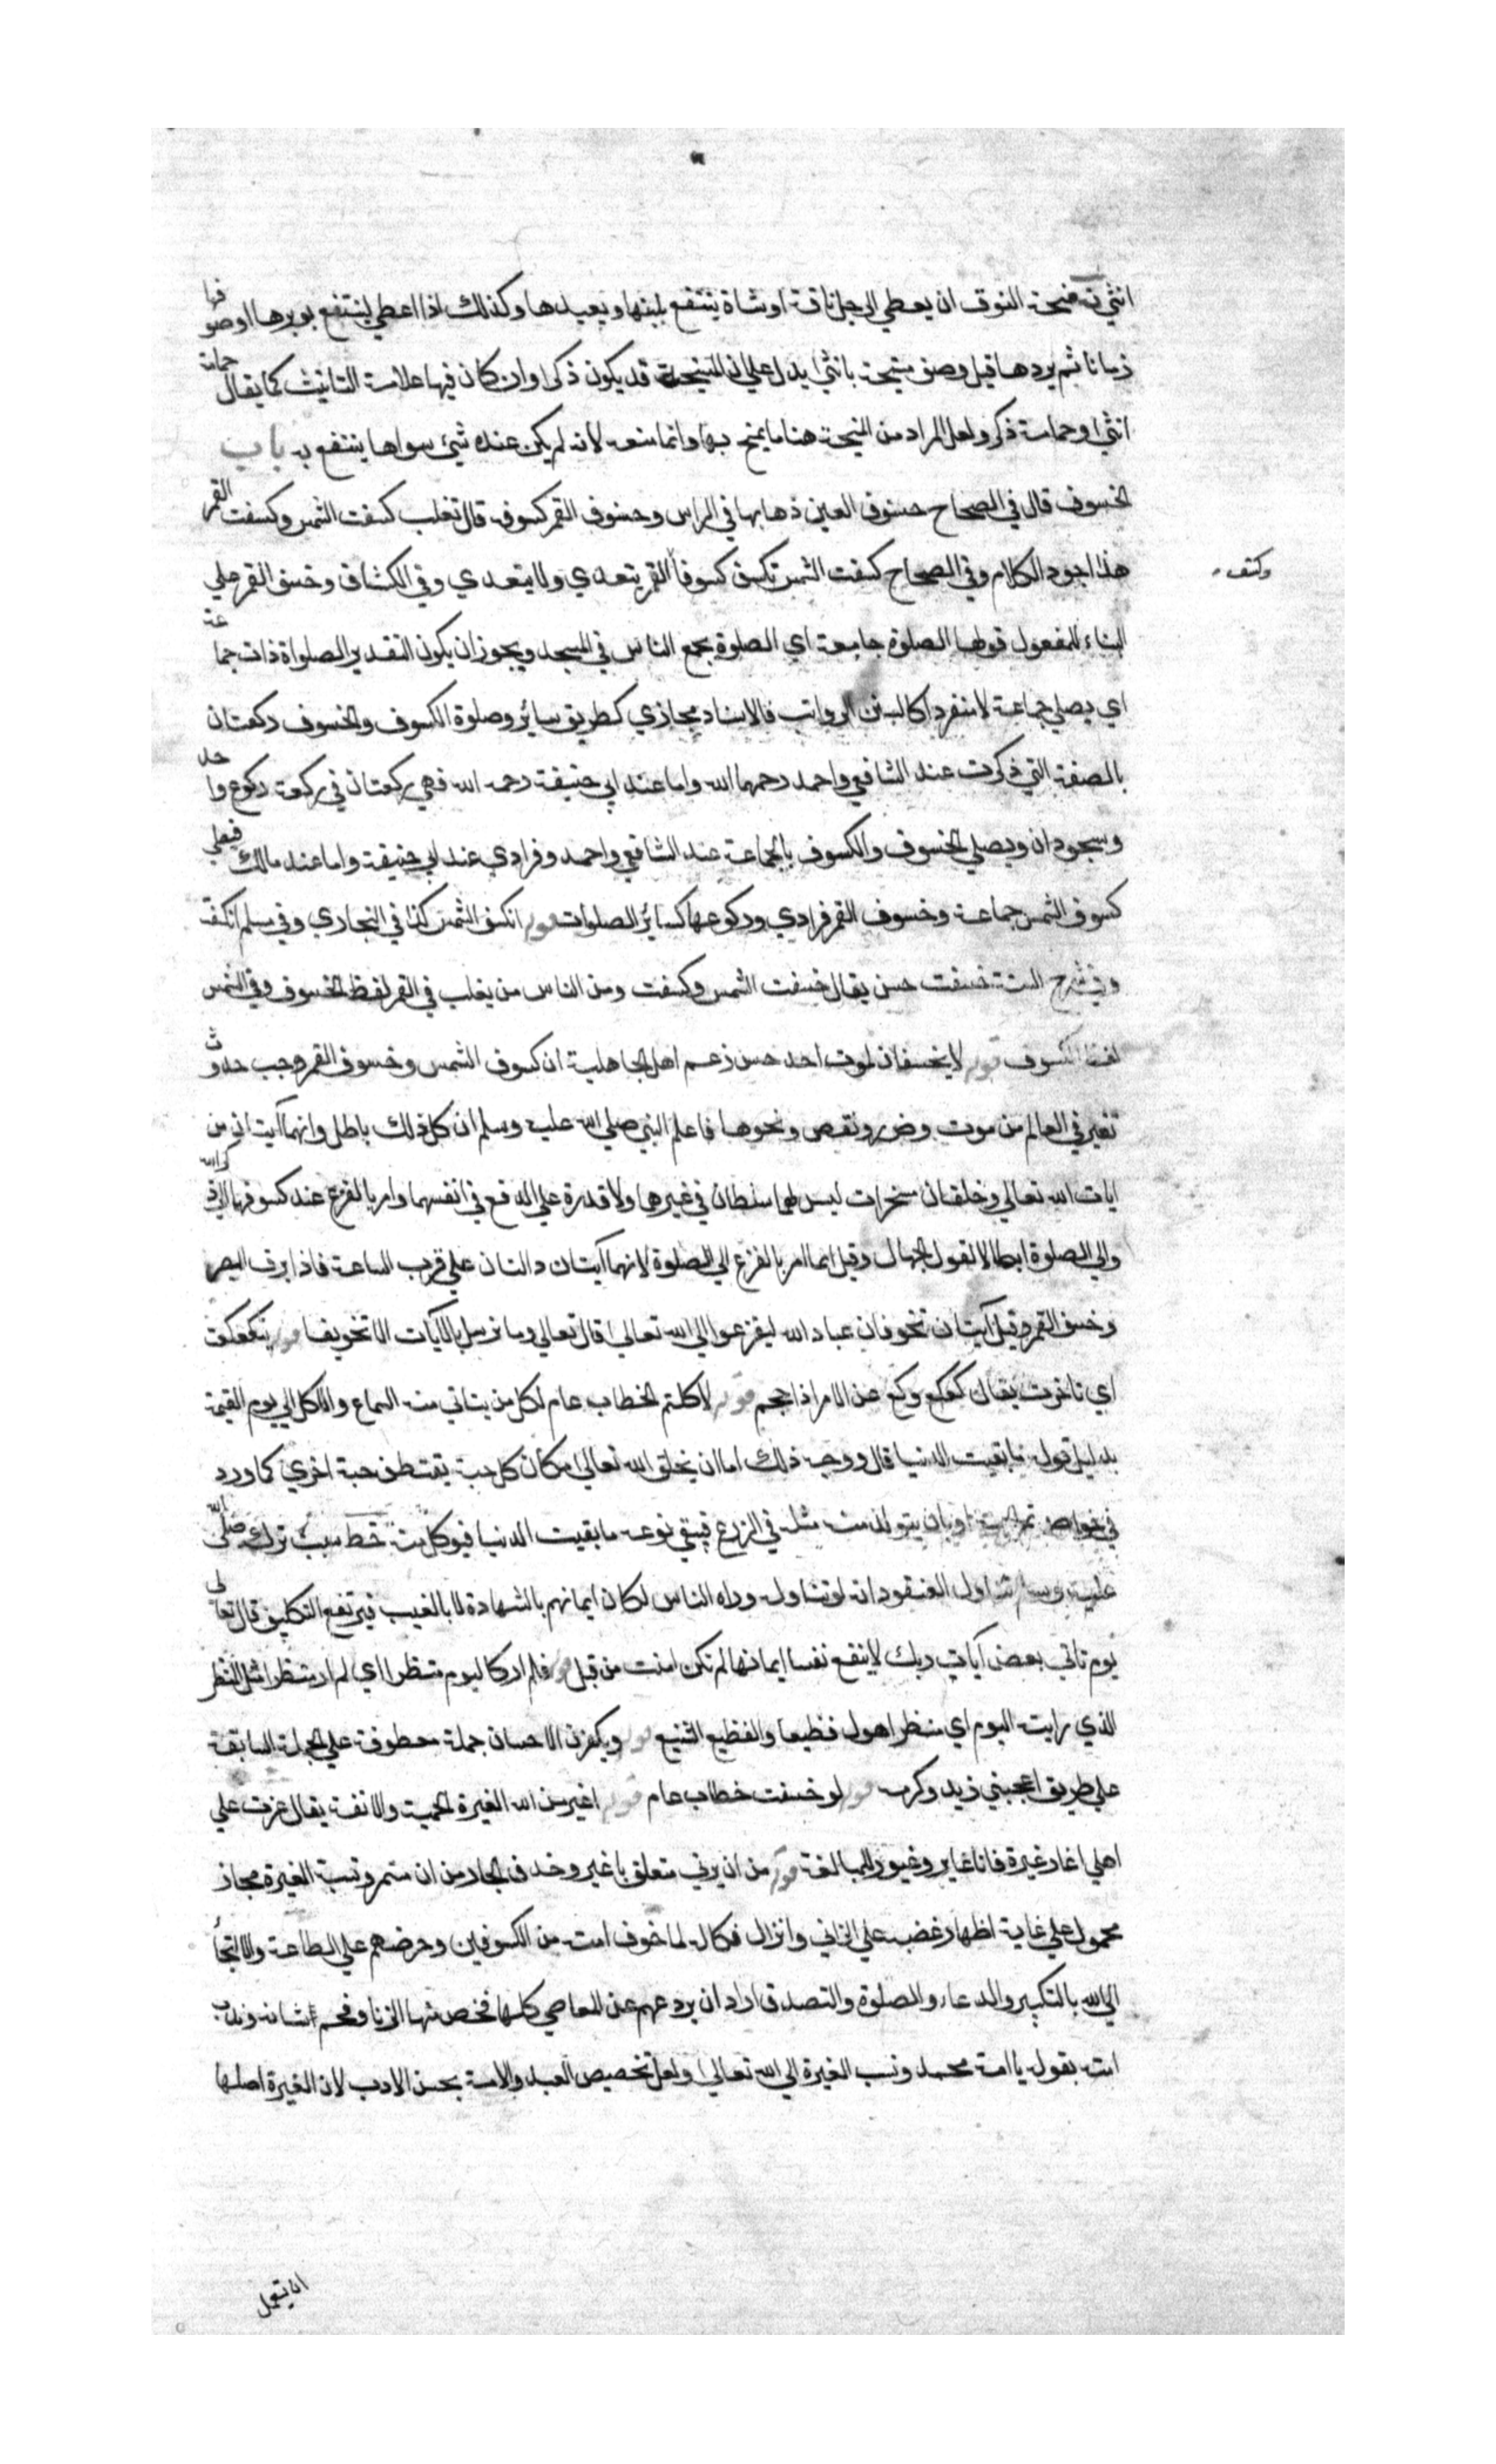 انثي قوله منيحة النوق ان يعطي الرجل ناقة او شاة ينتفع بلبنها ويعيدها وكذلك اذا اعطي لينتفع بوبرها او صوفها
زمانا ثم يردها قيل وصف منيحة بانثي يدل علي ان المنيحة قد يكون ذكرا وان كان فيها علامة التانيث كما يقال حمامة
انثي وحمامة ذكر ولعل المراد من المنيحة هنا ما يمنح بها وانما منعه لانه لم يكن عنده شيئ سواها ينتفع به باب
الخسوف قال في الصحاح خسوف العين ذهابها في الراس وخسوف القمر كسوفه قال ثعلب كسفت الشمس وكسفت القمر
هذا اجود الكلام وفي الصحاح كسفت الشمس تكسف كسوفا القمر يتعدي ولا يتعدي وفي الكشاف وخسف القمر علي
وكسف
البناء للمفعول قولها الصلوة جامعة اي الصلوة يجمع الناس في المسجد ويجوز ان يكون التقدير الصلواة ذات جماعة
اي يصلي جماعة لا منفردا كالسنن الرواتب فالاسناد مجازي كطريق سائر وصلوة الكسوف والخسوف ركعتان
بالصفة التي ذكرت عند الشافعي واحمد رحمهما الله واما عند ابي حنيفة رحمه الله فهي ركعتان في ركعة ركوع واحد
وسجودان ويصلي الخسوف والكسوف بالجماعة عند الشافعي واحمد وفرادي عند ابي حنيفة واما عند مالك فيصلي
كسوف الشمس جماعة وخسوف القمر فرادي وركوعها كسائر الصلوات قوله انكسف الشمس كذا في البخاري وفي مسلم انكسفت
وفي شرح السنة خسفت حسن يقال خسفت الشمس وكسفت ومن الناس من يغلب في القمر لفظ الخسوف وفي الشمس
لفظ الكسوف قوله لا يخسفان لموت احد حسن زعم اهل الجاهلية ان كسوف الشمس وخسوف القمر وجب حدوث
تغير في العالم من موت وضرر ونقص ونحوها فاعلم النبي صلي الله عليه وسلم ان كل ذلك باطل وانهما آيتان من
ايات الله تعالي وخلقان مسخرات ليس لهما سلطان في غيرهما ولا قدرة علي الدفع في انفسهما وامر بالفزع عند كسوفهما الي ذكر الله
والي الصلوة ابطالا لقول الجهال وقيل انما امر بالفزع الي الصلوة لانهما آيتان دالتان علي قرب الساعة فاذا برق البصر
وخسف القمر وقيل آيتان تخوفان عباد الله ليفزعوا الي الله تعالي قال تعالي وما نرسل بالآيات الا تخويفا قوله تكعكعت
اي تاخرت يقال كعكع وكع عن الامر اذا احجم قوله لاكلتم الخطاب عام لكل من يتاتي منه السماع والاكل الي يوم القيمة
بدليل قوله ما بقيت الدنيا قال ووجه ذلك اما ان يخلق الله تعالي مكان كل حبة يقتطف حبة اخري كما ورد
في خواص ثمر الجنة او بان يتولد منه مثله في الزرع فيبقي نوعه ما بقيت الدنيا فيوكل منه خط سبب تركه صلى الله
عليه وسلم تناول العنقود انه لو تناوله وراه الناس لكان ايمانهم بالشهادة لا بالغيب فيرتفع التكليف قال تعالي
يوم تاتي بعض آيات ربك لا ينفع نفسا ايمانها لم تكن امنت من قبل قوله فلم ار كاليوم منظرا اي لم ار منظرا مثل المنظر
الذي رايته اليوم اي منظرا هولا فظيعا والفظيع الشنيع قوله ويكفرن الاحسان جملة معطوفة علي الجملة السابقة
علي طريق اعجبني زيد وكرمه قوله لو خسفت خطاب عام قوله اغير من الله الغيرة الحمية والانفة يقال غرت علي
اهلي اغار غيرة فانا غاير وغيور للمبالغة قوله من ان يزني متعلق باغير وحذف الجار من ان مستمر ونسبة الغيرة مجاز
محمول علي غاية اظهار غضبه علي الزاني وانزال نكاله لما خوف امته من الكسوفين وحرضهم علي الطاعة والالتجأ
الي الله بالتكبير والدعاء والصلوة والتصدق اراد ان يردعهم عن المعاصي كلها فخص منها الزنا وفخم شانه وندب
امته بقوله يا امة محمد ونسب الغيرة الي الله تعالي ولعل تخصيص العبد والامة بحسن الادب لان الغيرة اصلها
ان يستعمل